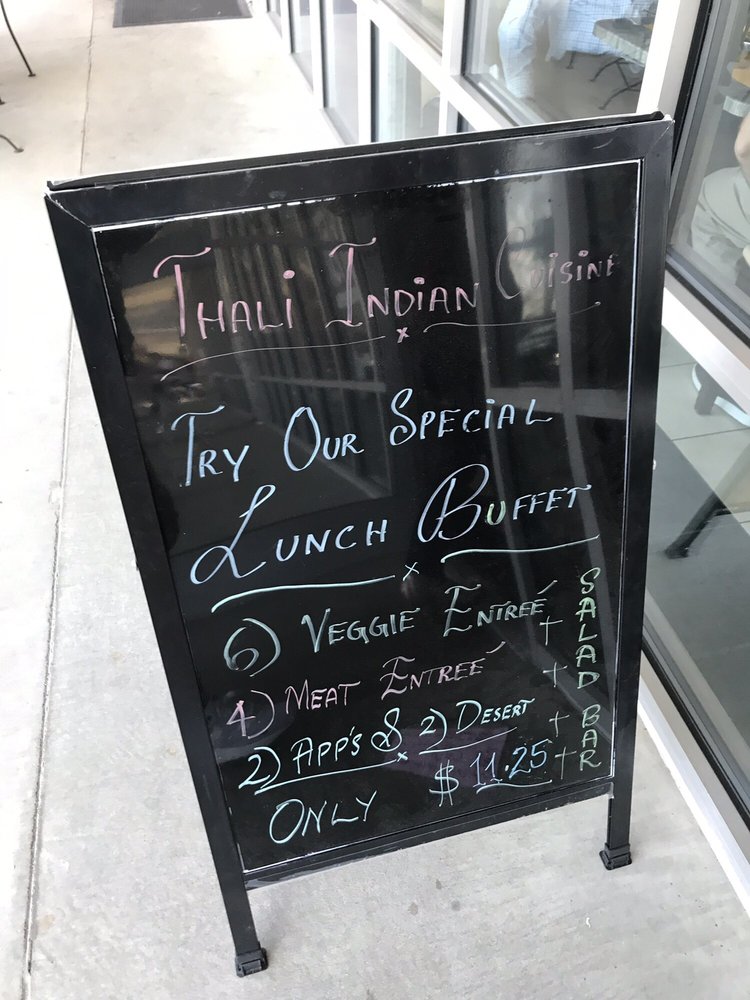 Thali Indian Cuisine
Try Our Special
Lunch Buffet
6) Veggie Entreé +
4) Meat Entreé +
2) App's & 2) Desert +
Only $11.25 +
SALAD BAR